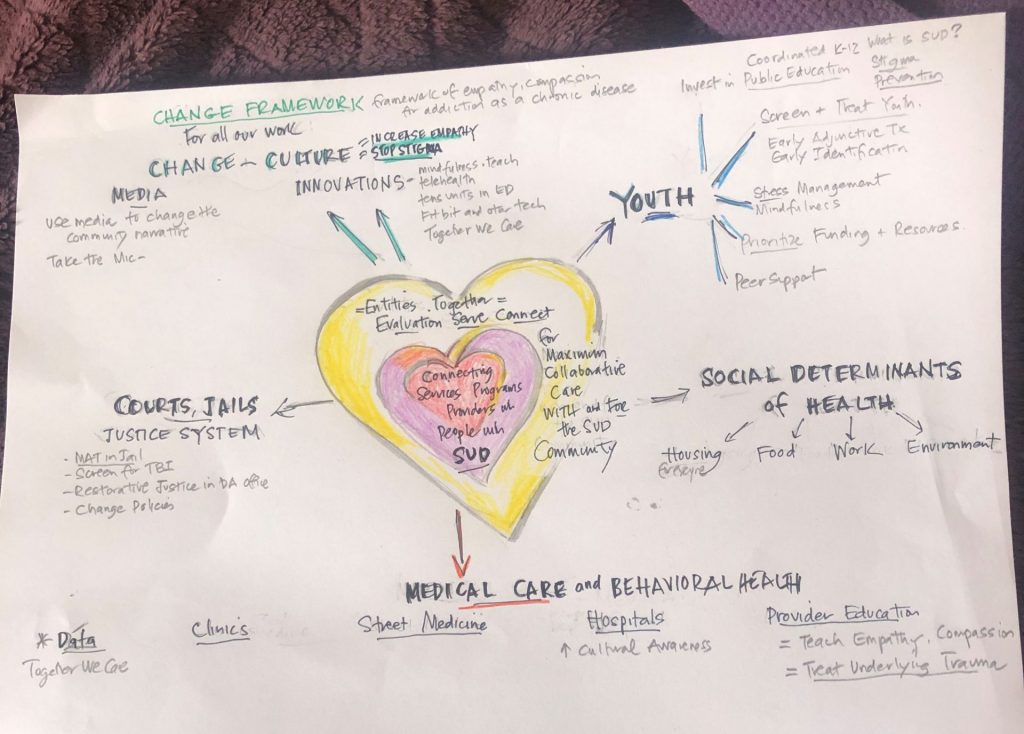 CHANGE FRAMEWORK
framework of empathy, compassion
for addiction as a chronic disease
For all our work
CHANGE - CULTURE
= INCREASE EMPATHY
= STOP STIGMA
INNOVATIONS -
mindfulness. teach
telehealth
tens units in ED
Fit bit and other tech
Together We Care
MEDIA
use media to change the
community narrative
Take the Mic -
YOUTH
Invest in
Coordinated K-12
Public Education
What is SUD?
Stigma
Prevention
Screen + Treat Youth.
Early Adjunctive Tx
Early Identification
Stress Management
Mindfulness
Prioritize Funding + Resources.
Peer Support
= Entities Together =
Evaluation Serve Connect
for
Maximum
Collaborative
Care
WITH and FOR
the SUD
Community
Connecting
Services Programs
Providers w/
People w/
SUD
COURTS, JAILS
JUSTICE SYSTEM
- MAT in Jail
- Screen for TBI
- Restorative Justice in DA office
- Change Policies
SOCIAL DETERMINANTS
of HEALTH
Housing
Food
Work
Environment
MEDICAL CARE and BEHAVIORAL HEALTH
* Data
Together We Care
Clinics
Street Medicine
Hospitals
↑ Cultural Awareness
Provider Education
= Teach Empathy, Compassion
= Treat Underlying Trauma